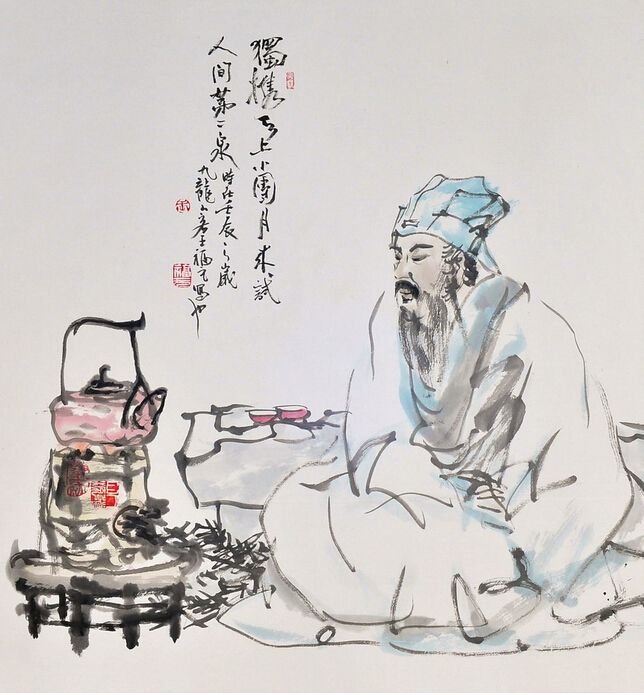 獨携天上小團月来試
人间苐二泉
時在壬辰之歲
九龍山客王福元寫也